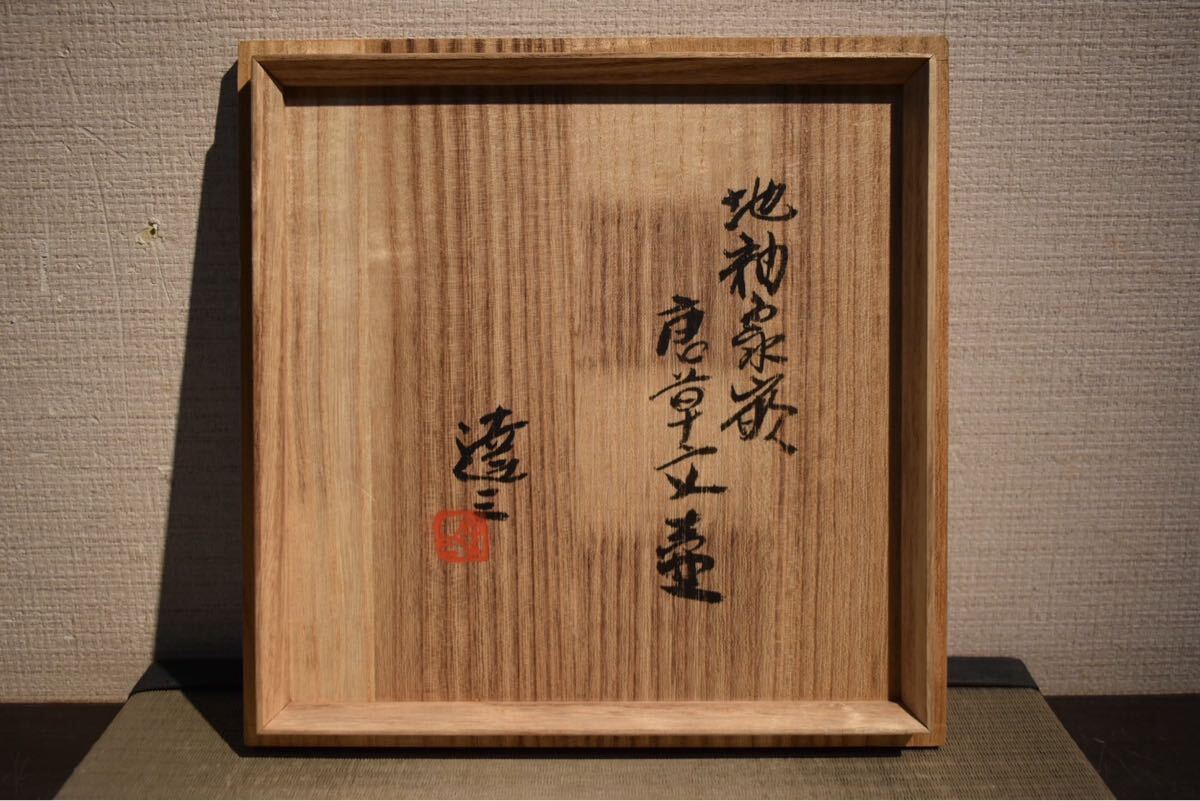 地釉象嵌
唐草文壷
達三